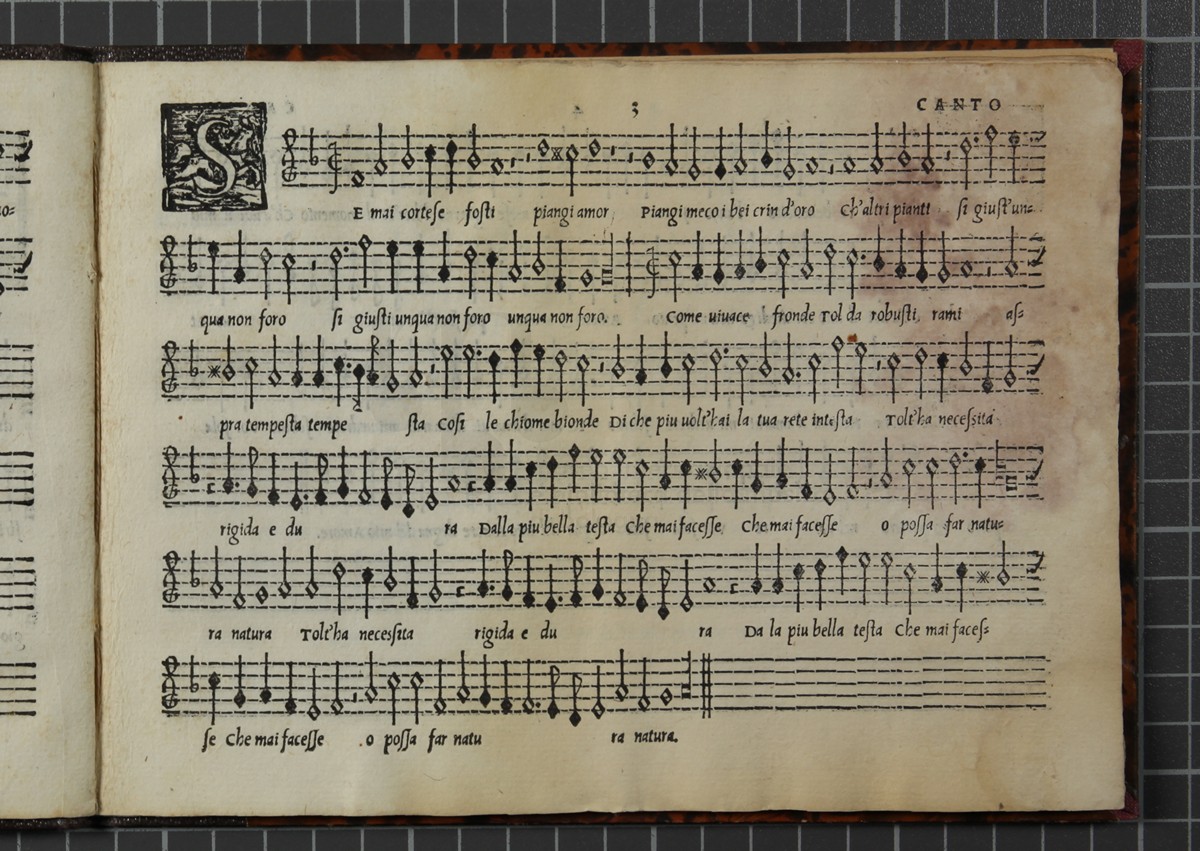 3 CANTO
SE mai corteſe foſti piangi amor Piangi meco i bei crin d'oro Ch'altri pianti ſi giuſt'un=
qua non foro ſi giuſti unqua non foro unqua non foro. Come uiuace fronde Tol da robuſti rami aſ=
pra tempeſta tempe ſta Coſi le chiome bionde Di che piu uolt'hai la tua rete inteſta Tolt'ha neceſsita
rigida e du ra Dalla piu bella teſta Che mai faceſſe Che mai faceſſe o poſſa far natu=
ra natura Tolt'ha neceſsita rigida e du ra Da la piu bella teſta Che mai faceſ=
ſe Che mai faceſſe o poſſa far natu ra natura.